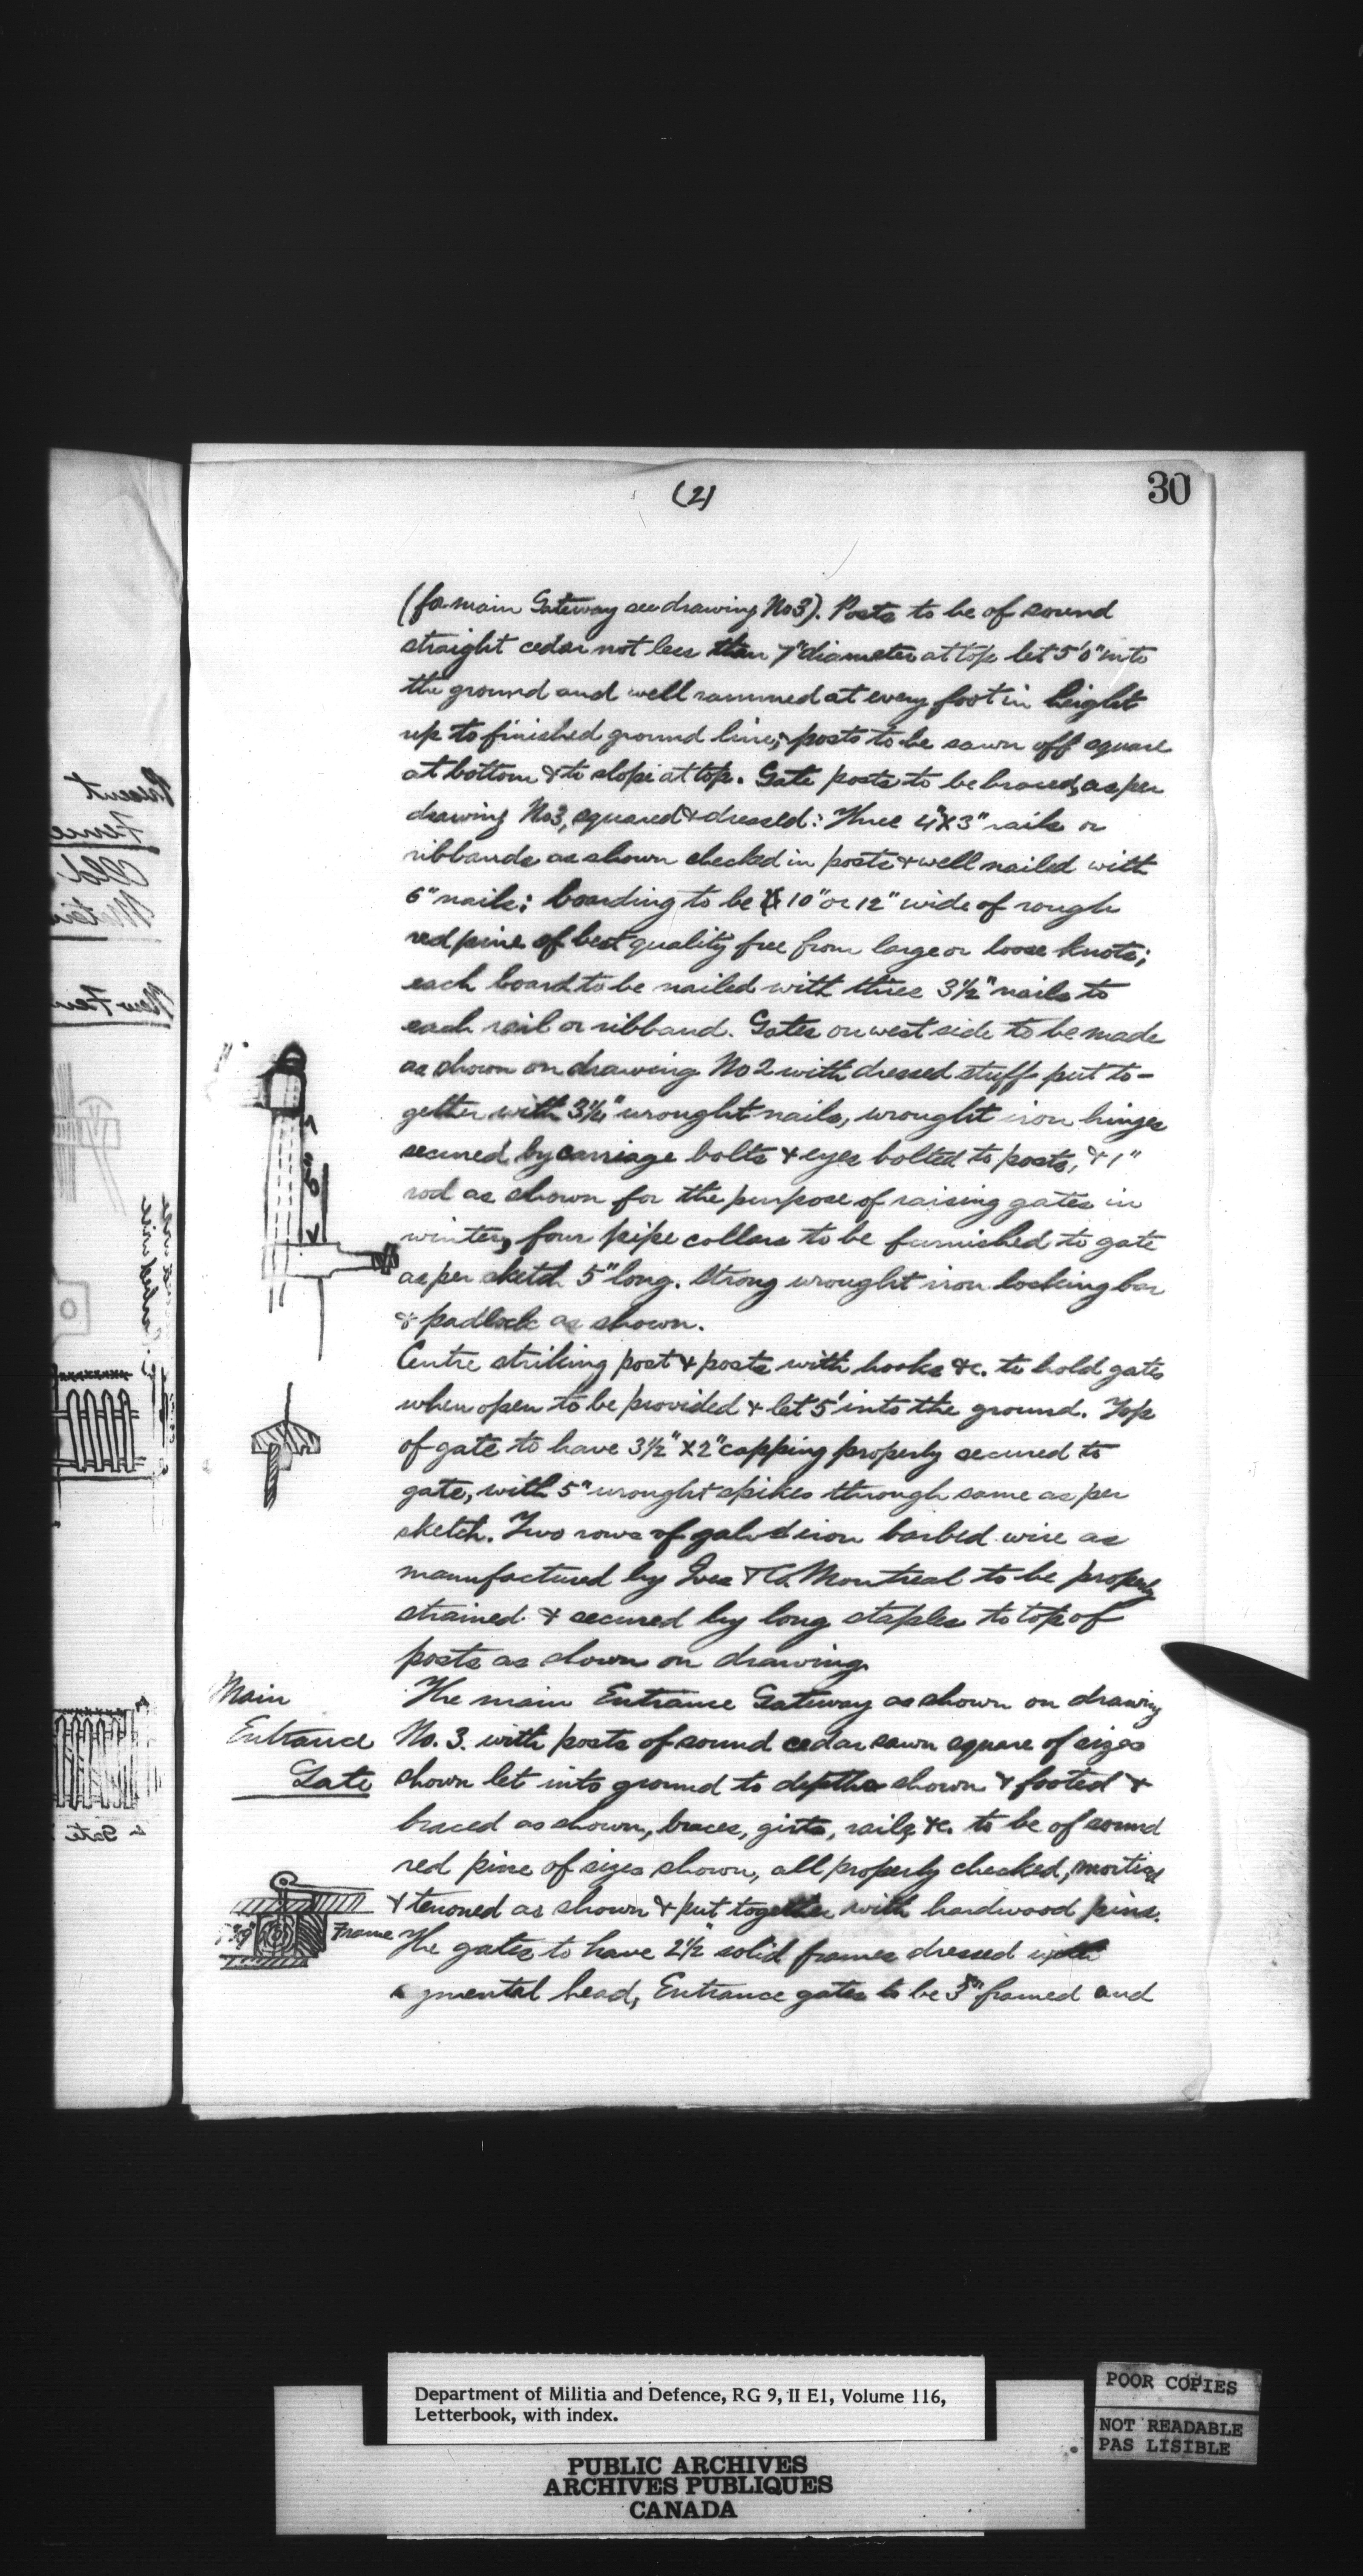 (2)
30
(for main Gateway see drawing No3). Posts to be of sound
straight cedar not less than 7" diameter at top let 5'0" into
the ground and well rammed at every foot in height
up to finished ground line; posts to be sawn off square
at bottom & to slope at top. Gate posts to be braced, as per
drawing No3, squared & dressed: Three 4"X3" rails or
ribbands as shown checked in posts & well nailed with
6" nails; boarding to be 10" or 12" wide of rough
red pine of best quality free from large or loose knots;
each board to be nailed with three 3½" nails to
each rail or ribband. Gates on west side to be made
as shown on drawing No 2 with dressed stuff put to-
gether with 3¼" wrought nails, wrought iron hinges
secured by carriage bolts & eyes bolted to posts, & 1"
rod as shown for the purpose of raising gates in
winter, four pipe collars to be furnished to gate
as per sketch 5" long. Strong wrought iron locking bar
& padlock as shown.
Centre striking post & posts with hooks &c. to hold gates
when open to be provided & let 5' into the ground. Top
of gate to have 3½" X 2" capping properly secured to
gate, with 5" wrought spikes through same as per
sketch. Two rows of galvd iron barbed wire as
manufactured by Ives & Co. Montreal to be properly
strained & secured by long staples to top of
posts as shown on drawing.
Main
Entrance
Gate
The main Entrance Gateway as shown on drawing
No. 3. with posts of sound cedar sawn square of sizes
shown let into ground to depths shown & footed &
braced as shown, braces, girts, rails, &c. to be of sound
red pine of sizes shown, all properly checked, morticed
& tenoned as shown & put together with hardwood pins.
Frame
The gates to have 2½" solid frames dressed with
gmental head, Entrance gates to be framed and
Department of Militia and Defence, RG 9, II E1, Volume 116,
Letterbook, with index.
PUBLIC ARCHIVES
ARCHIVES PUBLIQUES
CANADA
POOR COPIES
NOT READABLE
PAS LISIBLE